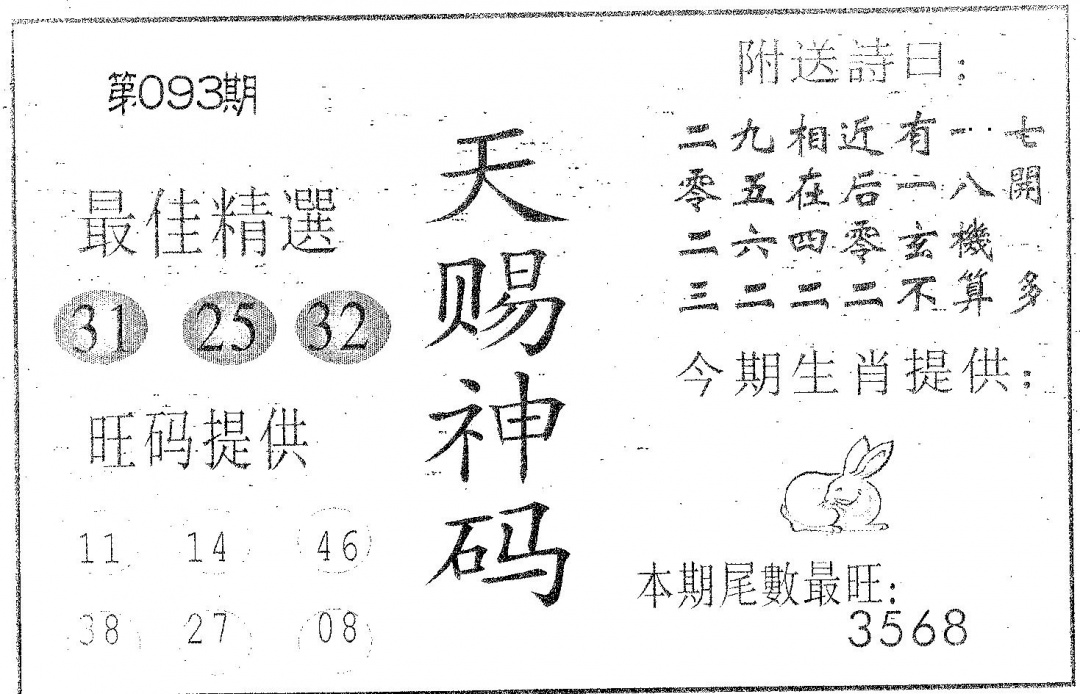 第093期
最佳精選
31 25 32
旺码提供
11 14 46
38 27 08
天赐神码
附送詩曰：
二九相近有一七
零五在后一八開
二六四零玄機
三二二二不算多
今期生肖提供：
本期尾數最旺：
3568